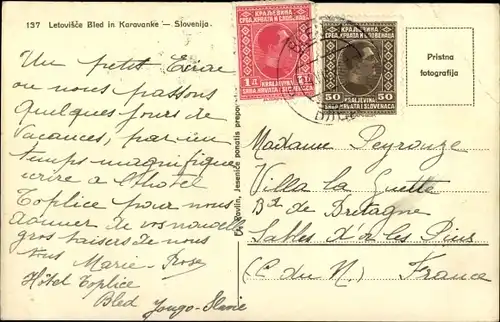 137 Letovišče Bled in Karavanke — Slovenija.
Un petit
où nous passons
quelques jours de
vacances, par un
temps magnifique
écrire à l'hôtel
Toplice pour nous
donner de vos nouvelles
gros baisers de nous
tous Marie-Rose
Hôtel Toplice
Bled Yougo-Slavie
Jesenice ponatis prepovedan
КРАЉЕВИНА
СРБА, ХРВАТА И СЛОВЕНАЦА
1 Д
KRALJEVINA
SRBA, HRVATA I SLOVENACA
КРАЉЕВИНА
СРБА, ХРВАТА И СЛОВЕНАЦА
50 50
KRALJEVINA
SRBA, HRVATA I SLOVENACA
Pristna
fotografija
Madame Peyrouze
Villa la Guette
Bd de Bretagne
Sables d'or les Pins
(C. du N.) France